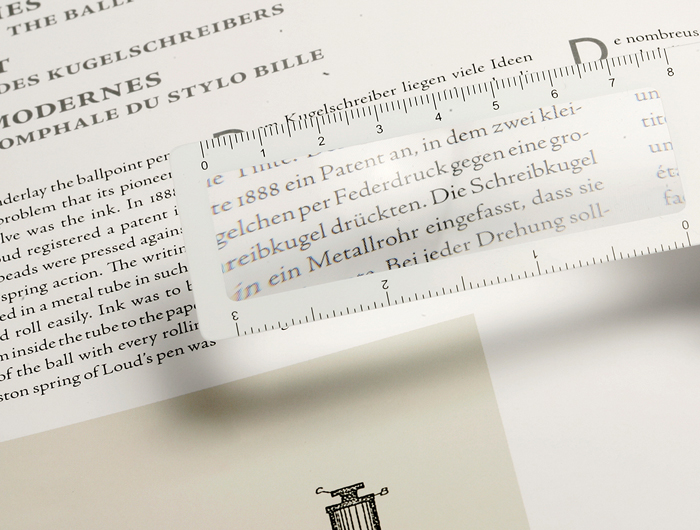 THE BALL
DES KUGELSCHREIBERS
MODERNES
OMPHALE DU STYLO BILLE
nderlay the ballpoint pen
problem that its pioneer
lve was the ink. In 188
ud registered a patent i
beads were pressed again
spring action. The writin
ed in a metal tube in such
d roll easily. Ink was to b
n inside the tube to the pap
of the ball with every rollin
ston spring of Loud's pen was
Kugelschreiber liegen viele Ideen
te 1888 ein Patent an, in dem zwei klei-
gelchen per Federdruck gegen eine gro-
reibkugel drückten. Die Schreibkugel
in ein Metallrohr eingefasst, dass sie
Bei jeder Drehung soll-
De nombreus
un
tit
un
ét
fa
0 1 2 3 4 5 6 7 8
3 2 1 0
C B